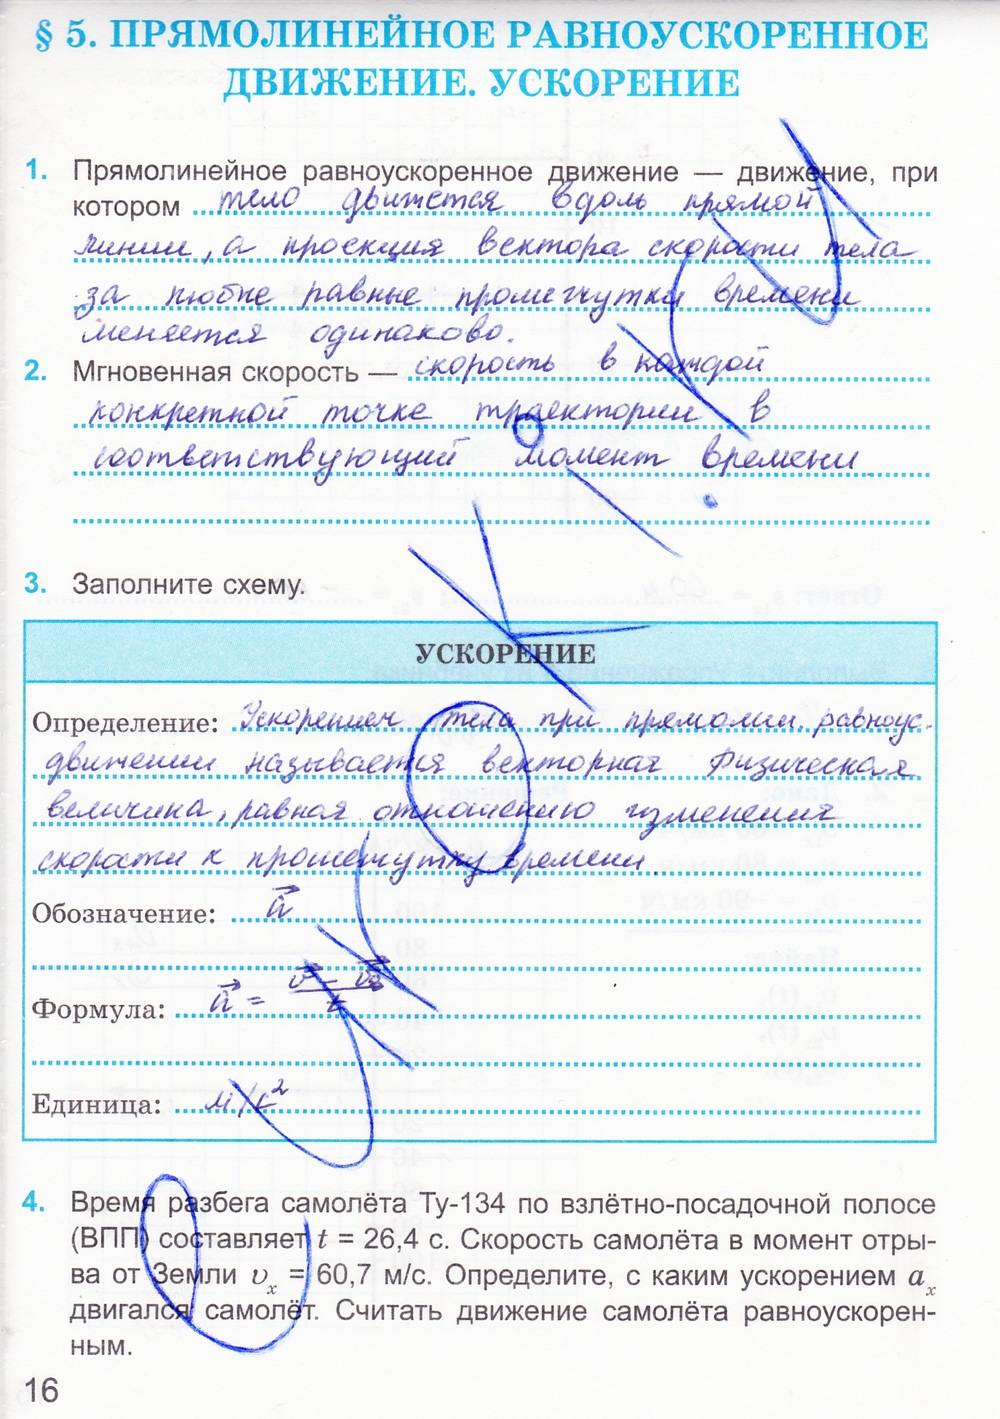 § 5. ПРЯМОЛИНЕЙНОЕ РАВНОУСКОРЕННОЕ
ДВИЖЕНИЕ. УСКОРЕНИЕ
1. Прямолинейное равноускоренное движение — движение, при
котором тело движется вдоль прямой
линии, а проекция вектора скорости тела
за любые равные промежутки времени
меняется одинаково.
2. Мгновенная скорость — скорость в каждой
конкретной точке траектории в
соответствующий момент времени
3. Заполните схему.
УСКОРЕНИЕ
Определение: Ускорением тела при прямолин. равноус.
движении называется векторная физическая
величина, равная отношению изменения
скорости к промежутку времени.
Обозначение: a⃗
Формула: a⃗ = (v⃗ − v⃗₀) / t
Единица: м/с²
4. Время разбега самолёта Ту-134 по взлётно-посадочной полосе
(ВПП) составляет t = 26,4 с. Скорость самолёта в момент отры-
ва от Земли υₓ = 60,7 м/с. Определите, с каким ускорением aₓ
двигался самолёт. Считать движение самолёта равноускорен-
ным.
16